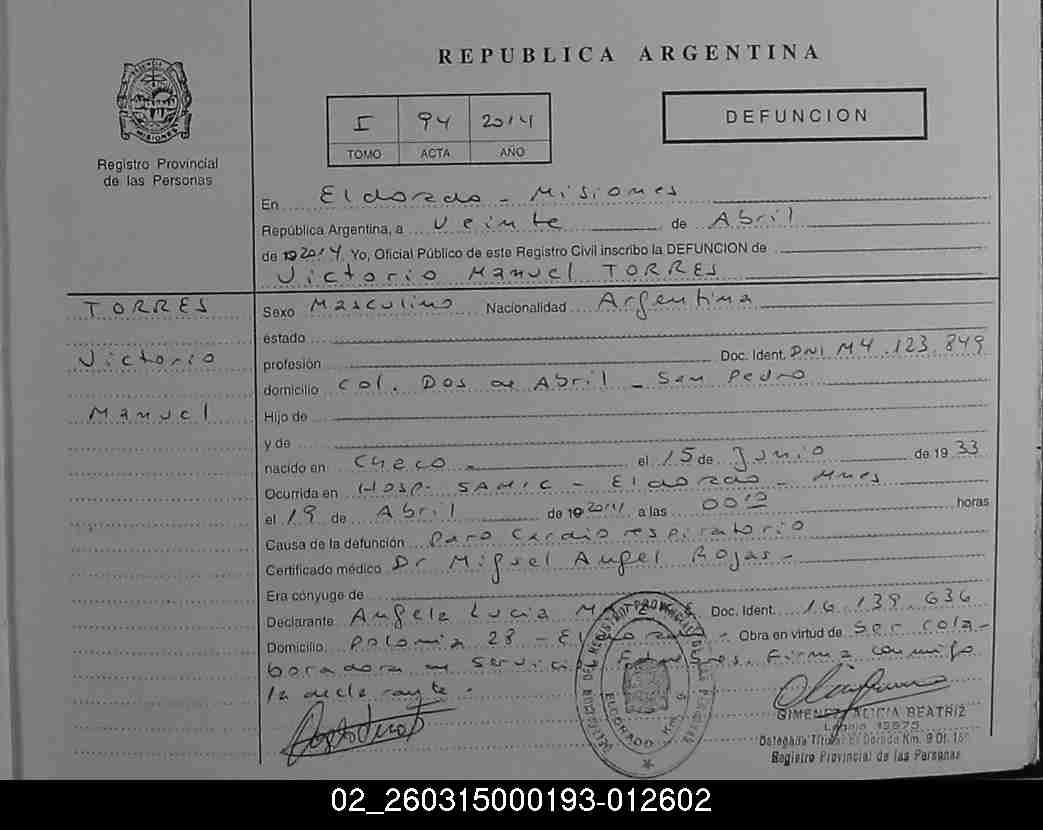 REPUBLICA ARGENTINA
PROVINCIA DE MISIONES
Registro Provincial
de las Personas
I 94 2014
TOMO ACTA AÑO
DEFUNCION
En Eldorado - Misiones
República Argentina, a veinte de Abril
de 192014 Yo, Oficial Público de este Registro Civil inscribo la DEFUNCION de
Victorio Manuel TORRES
TORRES
Victorio
Manuel
Sexo Masculino Nacionalidad Argentina
estado
profesión Doc. Ident. DNI M4.123.849
domicilio Col. Dos de Abril - San Pedro
Hijo de
y de
nacido en Checo - el 15 de Junio de 1933
Ocurrida en Hosp. SAMIC - Eldorado - Mnes
el 19 de Abril de 192014 a las 00 horas
Causa de la defunción Paro cardiorespiratorio
Certificado médico Dr Miguel Angel Rojas -
Era cónyuge de
Declarante Angela Lucia Doc. Ident. 16.139.636
Domicilio Polonia 28 - Obra en virtud de Ser cola-
boradora de servicios Firma conmigo
la declarante.
ELDORADO KM. 9
GIMENEZ ALICIA BEATRIZ
Delegada Titular El Dorado Km. 9
Registro Provincial de las Personas
02_260315000193-012602